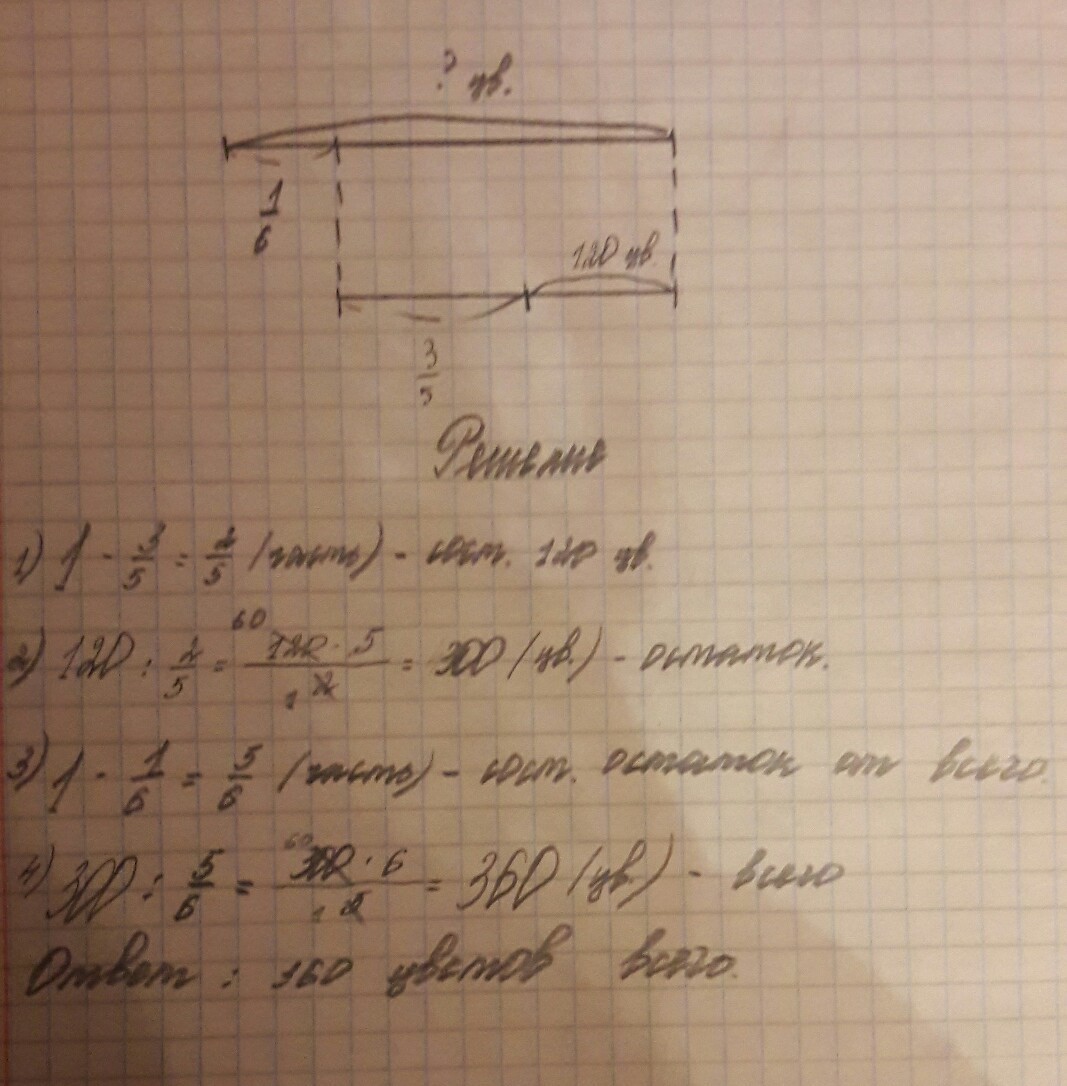 ? цв.
1/6
120 цв.
3/5
Решение
1) 1 - 3/5 = 2/5 (часть) - сост. 120 цв.
2) 120 : 2/5 = 120 · 5 / 2 = 300 (цв.) - остаток.
60 1
3) 1 - 1/6 = 5/6 (часть) - сост. остаток от всего.
4) 300 : 5/6 = 300 · 6 / 5 = 360 (цв.) - всего
60 1
Ответ : 360 цветов всего.